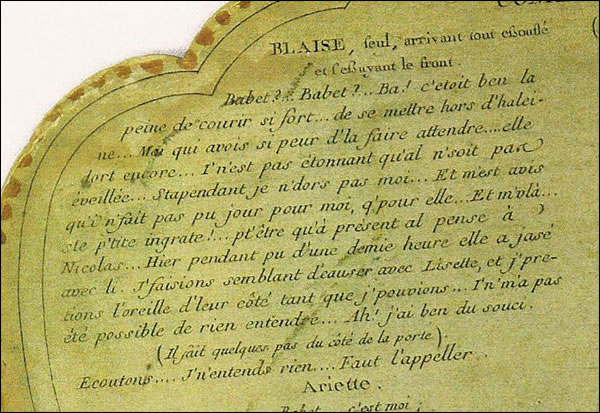 COM
BLAISE, seul, arrivant tout essouflé
et s'essuyant le front.
Babet?... Babet?... Ba! c'etoit ben la
peine de courir si fort... de se mettre hors d'halei-
ne... Moi qui avois si peur d'la faire attendre....elle
dort encore... I'n'est pas étonnant qu'al n'soit pas
éveillée... Stapendant je n'dors pas moi... Et m'est avis
qu'i n'fait pas pu jour pour moi, q'pour elle... Et m'vlà...
ste p'tite ingrate!... pt'être qu'à présent al pense à
Nicolas... Hier pendant pu d'une demie heure elle a jasé
avec li. J'faisions semblant d'causer avec Lisette, et j'pre-
tions l'oreille d'leur côté tant que j'pouvions... I'n'm'a pas
été possible de rien entendre... Ah! j'ai ben du souci.
(Il fait quelques pas du côté de la porte).
Ecoutons.... J'n'entends rien.... Faut l'appeller.
Ariette.
Babet c'est moi;